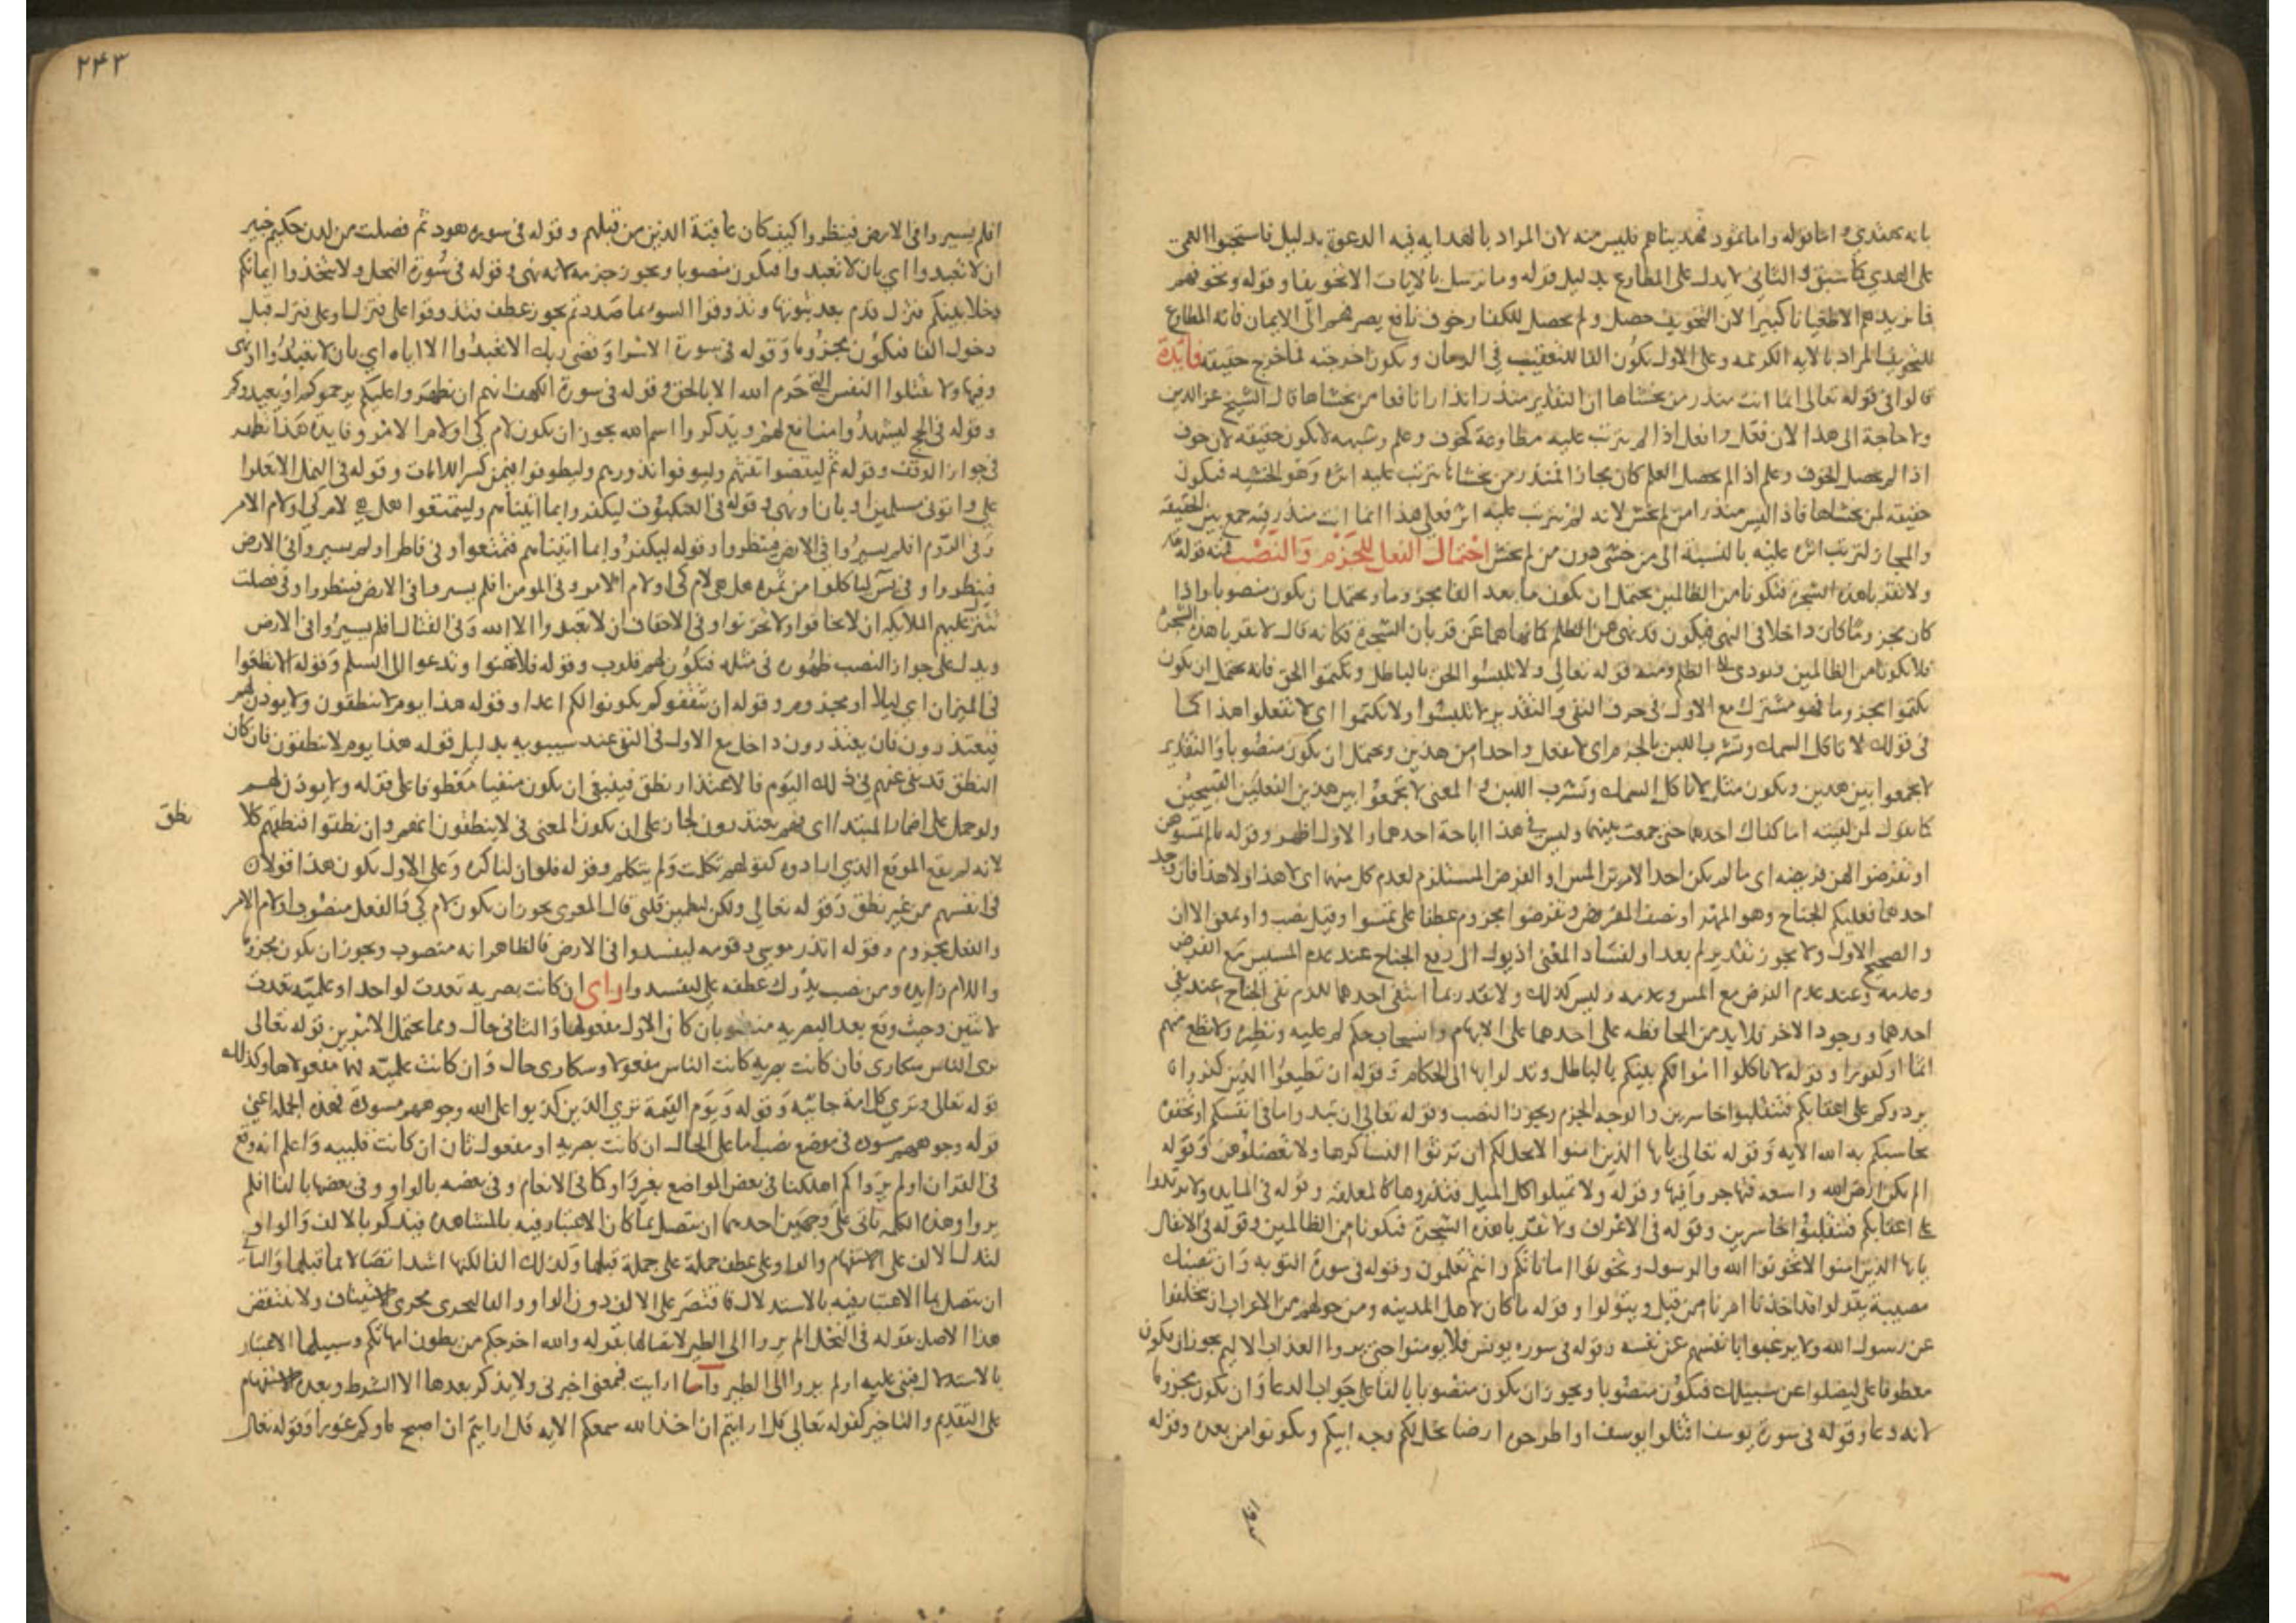 بانه يهتدي واما قوله واما ثمود فهديناهم فليس منه لان المراد بالهداية فيه الدعوة بدليل فاستحبوا العمى
على الهدى كما سبق ك الثاني لا يدل على المطاوع بدليل قوله وما نرسل بالايات الا تخويفا وقوله ونخوفهم
فما يزيدهم الا طغيانا كبيرا لان التخويف حصل ولم يحصل للكفار خوف نافع يصرفهم الى الايمان فانه المطاوع
للتخويف المراد بالاية الكريمه وعلى الاول يكون الفا للتعقيب في الزمان ويكون اخرجته فما خرج حقيقة فايدة
قالوا في قوله تعالى انما انت منذر من يخشاها ان التقدير منذر انذارا نافعا من يخشاها قال الشيخ عز الدين
ولا حاجة الى هذا لان فعل وافعل اذا لم يترتب عليه مطاوعة كخوف وعلم وشبهه لا يكون حقيقة لان خوف
اذا لم يحصل الخوف وعلم اذا لم يحصل العلم كان مجازا فمنذر من يخشاها يترتب عليه اثره وهو الخشيه فيكون
حقيقة لمن يخشاها فاذا ليس منذرا من لم يخش لانه لم يترتب عليه اثر فعلى هذا انما انت منذر فيه جمع بين الحقيقة
والمجاز لترتب اثره عليه بالنسبة الى من خشي دون من لم يخش احتمال الفعل للجزم والنصب فمنه قوله تعالى
ولا تقربا هذه الشجرة فتكونا من الظالمين يحتمل ان يكون ما بعد الفا مجزوما ويحتمل ان يكون منصوبا واذا
كان مجزوما كان داخلا في النهي فيكون قد نهى عن الظلم كما نهاهما عن قربان الشجرة فكانه قال لا تقربا هذه الشجرة
فلا تكونا من الظالمين ومنه قوله تعالى ولا تلبسوا الحق بالباطل وتكتموا الحق فانه يحتمل ان يكون
تكتموا مجزوما فهو مشترك مع الاول في حرف النفي والتقدير لا تلبسوا ولا تكتموا اي لا تفعلوا هذا كما
في قولك لا تاكل السمك وتشرب اللبن بالجزم اي لا تفعل واحدا من هذين ويحتمل ان يكون منصوبا والتقدير
لا تجمعوا بين هذين ويكون مثل لا تاكل السمك وتشرب اللبن والمعنى لا تجمعوا بين هذين الفعلين القبيحين
كما تقول لمن لقيته اما كفاك احدهما حتى جمعت بينهما وليس في هذا اباحة احدهما والاول اظهر وقوله ما لم تمسوهن
او تفرضوا لهن فريضه اي ما لم يكن احد الامرين المس او الفرض المستلزم لعدم كل منهما اي لا هذا ولا هذا فان وجد
احدهما فعليكم الجناح وهو المهر او نصف المفروض وتفرضوا مجزوم عطفا على تمسوا وقيل نصب واو بمعنى الا ان
والصحيح الاول ولا يجوز تقدير لم بعد او لفساد المعنى اذ يول الى رفع الجناح عند عدم المسيس مع الفرض
وعدمه وعند عدم الفرض مع المس وعدمه وليس كذلك ولا تقدر بما انتفى احدهما للزم نفى الجناح عند نفي
احدهما ووجود الاخر فلا بد من المحافظه على احدهما على الابهام وانسحاب حكم لم عليه ونظيره ولا تطع منهم
اثما او كفورا وقوله لا تاكلوا اموالكم بينكم بالباطل وتدلوا بها الى الحكام وقوله ان تطيعوا الذين كفروا ان
يردوكم على اعقابكم فتنقلبوا خاسرين والوجه الجزم ويجوز النصب وقوله تعالى ان تبدوا ما في انفسكم او تخفوه
يحاسبكم به الله الاية وقوله تعالى يا ايها الذين امنوا لا يحل لكم ان ترثوا النسا كرها ولا تعضلوهن وقوله
الم تكن ارض الله واسعة فتهاجروا فيها وقوله ولا تميلوا كل الميل فتذروها كالمعلقة وقوله في المايده ولا ترتدوا
على اعقابكم فتنقلبوا خاسرين وقوله في الاعراف ولا تقربا هذه الشجرة فتكونا من الظالمين وقوله في الانفال
يا ايها الذين امنوا لا تخونوا الله والرسول وتخونوا اماناتكم وانتم تعلمون وقوله في سورة التوبه وان تصبك
مصيبة يقولوا قد اخذنا امرنا من قبل ويتولوا وقوله ما كان لاهل المدينه ومن حولهم من الاعراب ان يتخلفوا
عن رسول الله ولا يرغبوا بانفسهم عن نفسه وقوله في سوره يونس فلا يومنوا حتى يروا العذاب الاليم يجوز ان يكون
معطوفا على ليضلوا عن سبيلك فيكون منصوبا ويجوز ان يكون منصوبا بالفا على جواب الدعا وان يكون مجزوما
لانه دعا وقوله في سورة يوسف اقتلوا يوسف او اطرحوه ارضا يخل لكم وجه ابيكم وتكونوا من بعده وقوله
٢٤٣
افلم يسيروا في الارض فينظروا كيف كان عاقبة الذين من قبلهم وقوله في سوره هود ثم فصلت من لدن حكيم خبير
ان لا تعبدوا اي بان لا تعبدوا فيكون منصوبا ويجوز جزمه لانه نهي وقوله في سورة النحل ولا تتخذوا ايمانكم
دخلا بينكم فتزل قدم بعد ثبوتها وتذوقوا السوء بما صددتم يجوز عطف وتذوقوا على فتزل وعلى فتزل قبل
دخول الفا فيكون مجزوما وقوله في سورة الاسرا وقضى ربك الا تعبدوا الا اياه اي بان لا تعبدوا او نهى
وفيها ولا تقتلوا النفس التي حرم الله الا بالحق وقوله في سورة الكهف انهم ان يظهروا عليكم يرجموكم او يعيدوكم
وقوله في الحج ليشهدوا منافع لهم ويذكروا اسم الله يجوز ان يكون لام كي او لام الامر وفايدة هذا تظهر
في جواز الوقف وقوله ثم ليقضوا تفثهم وليوفوا نذورهم وليطوفوا فيمن كسر اللامات وقوله في النمل الا تعلوا
علي واتوني مسلمين او بان او نهي وقوله في العنكبوت ليكفروا بما اتيناهم وليتمتعوا هل هي لام كي او لام الامر
وفي الروم افلم يسيروا في الارض فينظروا وقوله ليكفروا بما اتيناهم فتمتعوا وفي فاطر اولم يسيروا في الارض
فينظروا وفي يس لياكلوا من ثمره هل هي لام كي او لام الامر وفي المومن افلم يسيروا في الارض فينظروا وفي فصلت
تتنزل عليهم الملايكة ان لا تخافوا ولا تحزنوا وفي الاحقاف ان لا تعبدوا الا الله وفي القتال افلم يسيروا في الارض
ويدل على جواز النصب ظهوره في مثله فتكون لهم قلوب وقوله فلا تهنوا وتدعوا الى السلم وقوله الا تطغوا
في الميزان اي ليلا او مجزوم وقوله ان يثقفوكم يكونوا لكم اعدا وقوله هذا يوم لا ينطقون ولا يوذن لهم
فيعتذرون فان يعتذرون داخل مع الاول في النفي عند سيبويه بدليل قوله هذا يوم لا ينطقون فان كان
النطق قد نفي عنهم في ذلك اليوم فالاعتذار نطق فينبغي ان يكون منفيا معطوفا على قوله ولا يوذن لهم
ولو حمل على اضمار المبتدا اي فهم يعتذرون لجاز على ان يكون المعنى في لا ينطقون انهم وان نطقوا فنطقهم كلا
نطق
لانه لم يقع الموقع الذي ارادوه كقولهم تكلمت ولم يتكلم وقوله فلو ان لنا كرة وعلى الاول يكون هذا قولا
في انفسهم من غير نطق وقوله تعالى ولكن ليطمين قلبي قال المعرى يجوز ان يكون لام كي والفعل منصوب او لام الامر
والفعل مجزوم وقوله اتذر موسى وقومه ليفسدوا في الارض فالظاهر انه منصوب ويجوز ان يكون مجزوما
واللام زايده ومن نصب ويذرك عطفه على ليفسدوا راى ان كانت بصريه تعدت لواحد او علميه تعدت
لاثنين وحيث وقع بعد البصريه منصوبان كان الاول مفعولها والثاني حال ومما يحتمل الامرين قوله تعالى
ترى الناس سكارى فان كانت بصرية كانت الناس مفعولا وسكارى حال وان كانت علميه فهما مفعولاها وكذلك
قوله تعالى وترى كل امة جاثيه وقوله ويوم القيمة ترى الذين كذبوا على الله وجوههم مسودة فهذه الجملة اعني
قوله وجوههم مسوده في موضع نصب اما على الحال ان كانت بصريه او مفعول ثان ان كانت قلبيه واعلم انه وقع
في القران اولم يروا كم اهلكنا في بعض المواضع بغير واو كما في الانعام وفي بعضه بالواو وفي بعضها بالفا افلم
يروا وهذه الكلمه تاتي على وجهين احدهما ان يتصل بما كان الاعتبار فيه بالمشاهده فيذكر بالالف والواو
لتدل الالف على الاستفهام والواو على عطف جملة على جملة قبلها وكذلك الفا لكنها اشد اتصالا بما قبلها والثاني
ان يتصل بما الاعتبار فيه بالاستدلال فاقتصر على الالف دون الواو والفا ليجري مجرى الاستيناف ولا ينتقض
هذا الاصل بقوله في النحل الم يروا الى الطير لاتصالها بقوله والله اخرجكم من بطون امهاتكم وسبيلها الاعتبار
بالاستدلال فبنى عليه اولم يروا الى الطير واما ارايت فبمعنى اخبرني ولا يذكر بعدها الا الشرط وبعده الاستفهام
على التقديم والتاخير كقوله تعالى قل ارايتم ان اخذ الله سمعكم الايه قل ارايتم ان اصبح ماوكم غورا وقوله تعالى